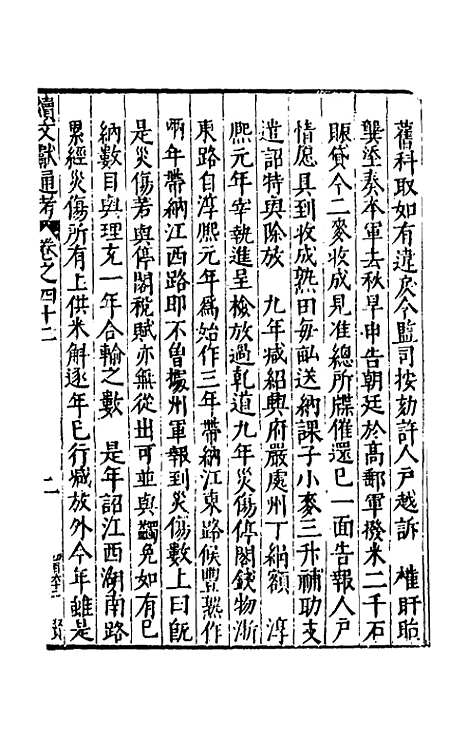 舊科取如有違戾令監司按劾許人戶越訴　權盱眙
龔鋈奏本軍去秋旱申告朝廷於高郵軍撥米二千石
賑貸今二麥收成見准總所牒催還已一面告報人戶
情愿具到收成熟田每畝送納課子小麥三升補助支
遣詔特與除放　九年減紹興府嚴處州丁絹額　淳
熙元年宰執進呈檢放過乾道九年災傷停閣錢物浙
東路自淳熙元年爲始作三年帶納江東路候豐熟作
兩年帶納江西路即不曾據州軍報到災傷數上曰旣
是災傷若與停閣稅賦亦無從出可並與蠲免如有已
納數目與理充一年合輸之數　是年詔江西湖南路
累經災傷所有上供米斛逐年已行减放外今年雖是
續文獻通考　卷之四十二　二